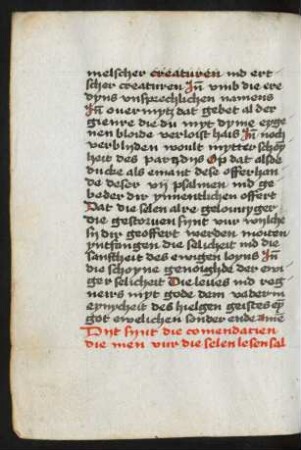 melscher creaturen ind ert
scher creaturen In vmb die ere
dyns vnsprechlichen namens
In ouermytz dat gebet al der
gienre die du myt dyme eyge
nen bloide verloist hais In noch
verblyden woult mytter schoy
heit des paradys Op dat alsde
ducke als emant dese offerhan
de deser vij psalmen ind ge
beder dir ynnentlichen offert
Dat die selen alre gelouuyger
die gestoruen synt vur wilche
sy dir geoffert werden moiten
yntfangen die selicheit ind die
sanftheit des ewigen loyns In
die schoyne genoichde der ewi
ger selicheit Die leues ind reg
neirs myt gode dem vader in
eynycheit des hielgen geistes eyn
got ewelichen sonder ende ame
Dyt synt die comendacien
die men vur die selen lesen sal